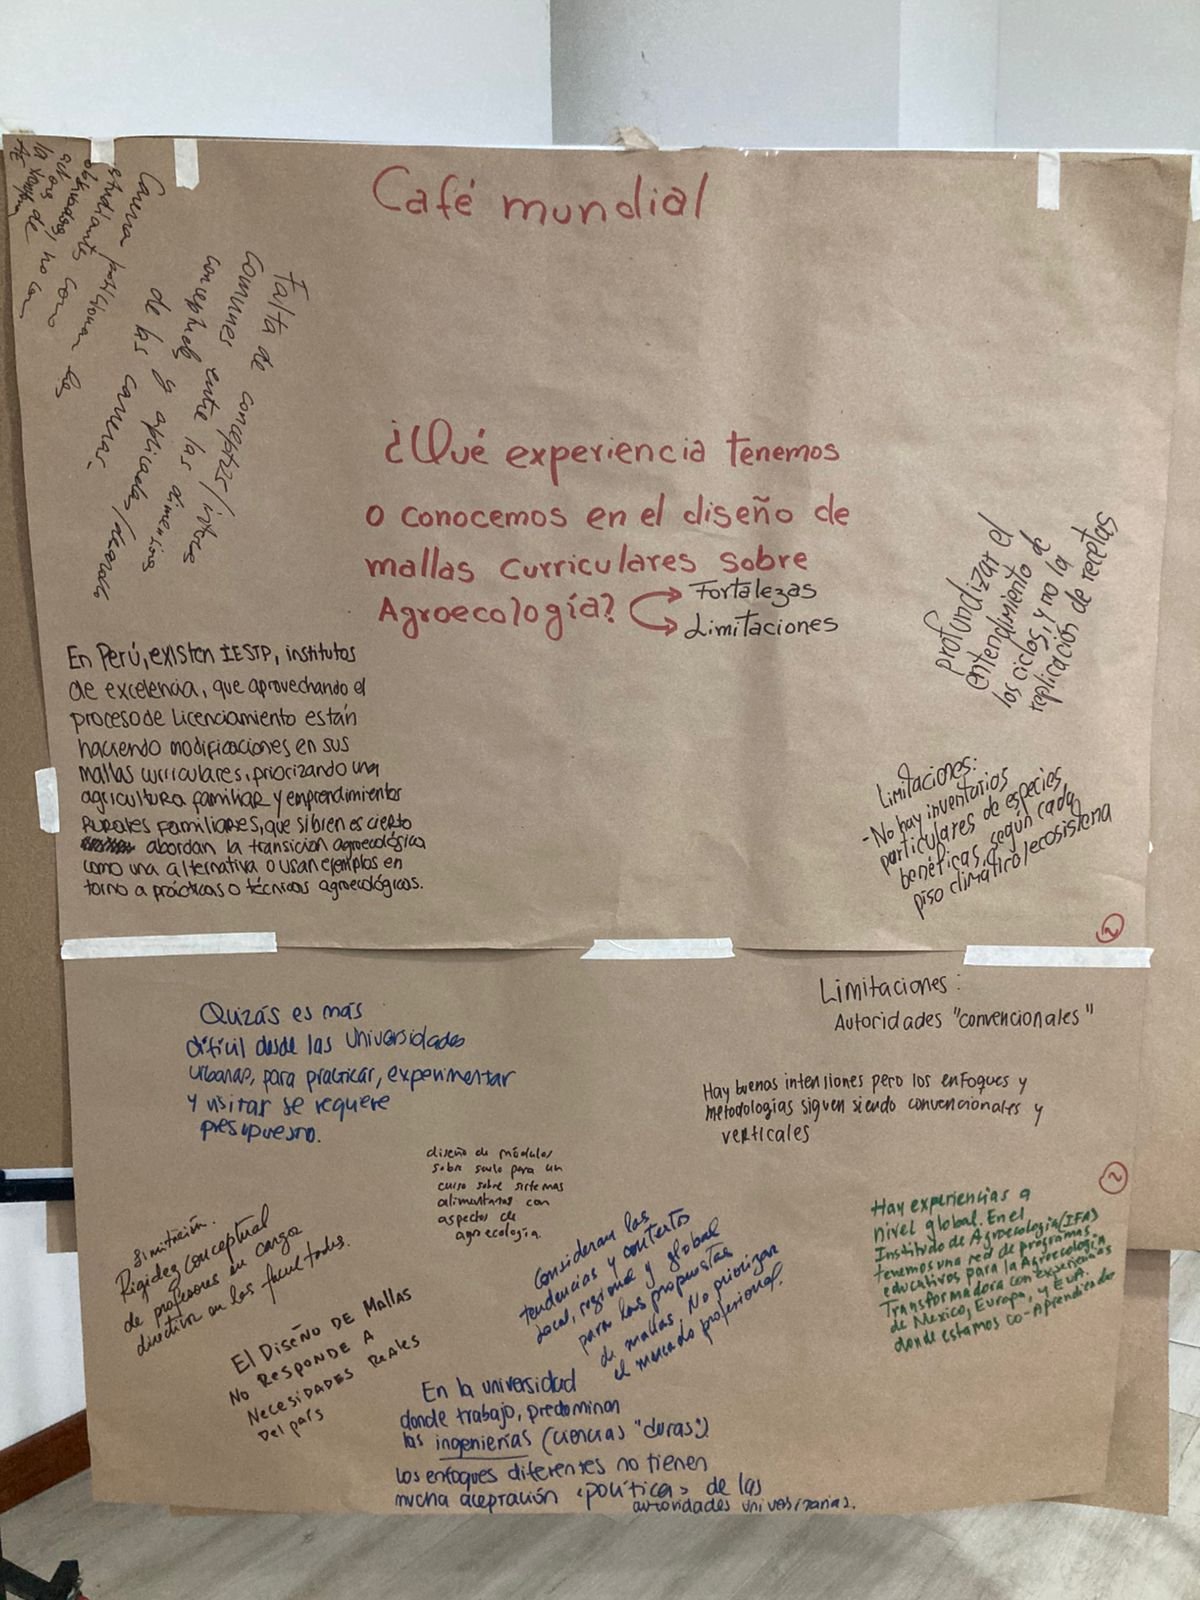 Café mundial
¿Qué experiencia tenemos
o conocemos en el diseño de
mallas curriculares sobre
Agroecología?
Fortalezas
Limitaciones
Falta de conceptos/
comunes entre las dimensiones
de las carreras.
En Perú, existen IESTP, institutos
de excelencia, que aprovechando el
proceso de Licenciamiento están
haciendo modificaciones en sus
mallas curriculares, priorizando una
agricultura familiar y emprendimientos
RURALES FAMILIARES, que si bien es cierto
abordan la transición agroecológica
como una alternativa o usan ejemplos en
torno a prácticas o técnicas agroecológicas.
profundizar el
entendimiento de
los ciclos, y no la
replicación de recetas
Limitaciones:
- No hay inventarios
particulares de especies
benéficas, según cada
piso climático/ecosistema
2
Quizás es más
difícil desde las Universidades
urbanas, para practicar, experimentar
y visitar se requiere
presupuesto.
Limitaciones:
Autoridades "convencionales"
Hay buenas intensiones pero los enfoques y
metodologías siguen siendo convencionales y
verticales
diseño de módulos
sobre suelo para un
curso sobre sistemas
alimentarios con
aspectos de
agroecología.
2
Limitación.
Rigidez conceptual
de profesores en cargos
directivos en las facultades.
El Diseño DE Mallas
No Responde A
Necesidades Reales
Del país
Consideran las
tendencias y contexto
local, regional y global
para las propuestas
de mallas. No priorizan
el mercado profesional.
Hay experiencias a
nivel global. En el
Instituto de Agroecología (IFA)
tenemos una red de programas
educativos para la Agroecología
Transformadora con experiencias
de Mexico, Europa, y EUA.
donde estamos co-Aprendiendo
En la universidad
donde trabajo, predominan
las ingenierías (ciencias "duras")
Los enfoques diferentes no tienen
mucha aceptación "política" de las
autoridades universitarias.